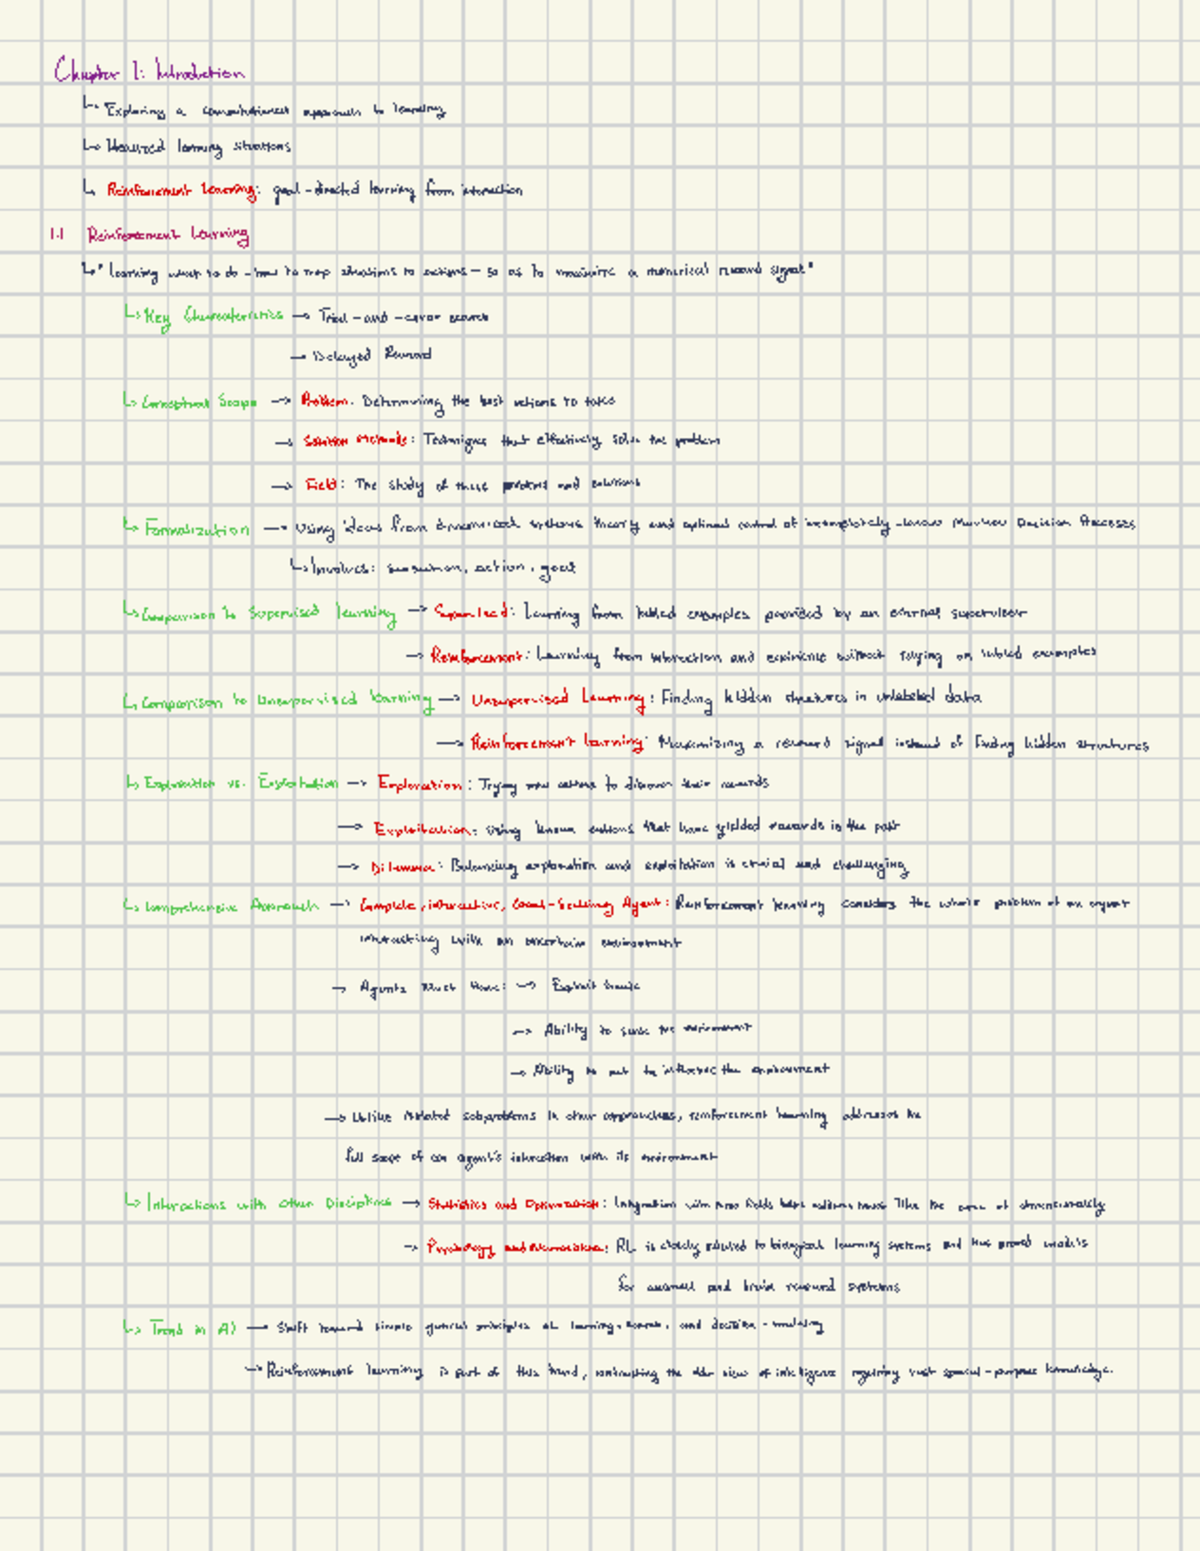 Chapter 1: Introduction
↳ Exploring a computational approach to learning
↳ Idealized learning situations
↳ Reinforcement Learning: goal-directed learning from interaction
1.1 Reinforcement Learning
↳ "Learning what to do - how to map situations to actions - so as to maximize a numerical reward signal"
↳ Key Characteristics → Trial-and-error search
→ Delayed Reward
↳ Conceptual Scope → Problem: Determining the best actions to take
→ Solution Methods: Techniques that effectively solve the problem
→ Field: The study of these problems and solutions
↳ Formalization → Using ideas from dynamical systems theory and optimal control of incompletely-known Markov Decision Processes
↳ Involves: sensation, action, goal
↳ Comparison to Supervised learning → Supervised: Learning from labeled examples provided by an external supervisor
→ Reinforcement: Learning from interaction and experience without relying on labeled examples
↳ Comparison to Unsupervised learning → Unsupervised Learning: Finding hidden structures in unlabeled data
→ Reinforcement learning: Maximizing a reward signal instead of finding hidden structures
↳ Exploration vs. Exploitation → Exploration: Trying new actions to discover their rewards
→ Exploitation: Using known actions that have yielded rewards in the past
→ Dilemma: Balancing exploration and exploitation is crucial and challenging
↳ Comprehensive Approach → Complete, interactive, Goal-Seeking Agent: Reinforcement learning considers the whole problem of an agent
interacting with an uncertain environment
→ Agents Must Have: → Explicit goals
→ Ability to sense the environment
→ Ability to act to influence the environment
→ Unlike isolated subproblems in other approaches, reinforcement learning addresses the
full scope of an agent's interaction with its environment
↳ Interactions with Other Disciplines → Statistics and Optimization: Integration with these fields helps address issues like the curse of dimensionality
→ Psychology and Neuroscience: RL is closely related to biological learning systems and has proved models
for animal and brain reward systems
↳ Trend in AI → Shift toward simple general principles of learning, search, and decision-making
→ Reinforcement learning is part of this trend, contrasting the older view of intelligence requiring vast special-purpose knowledge.